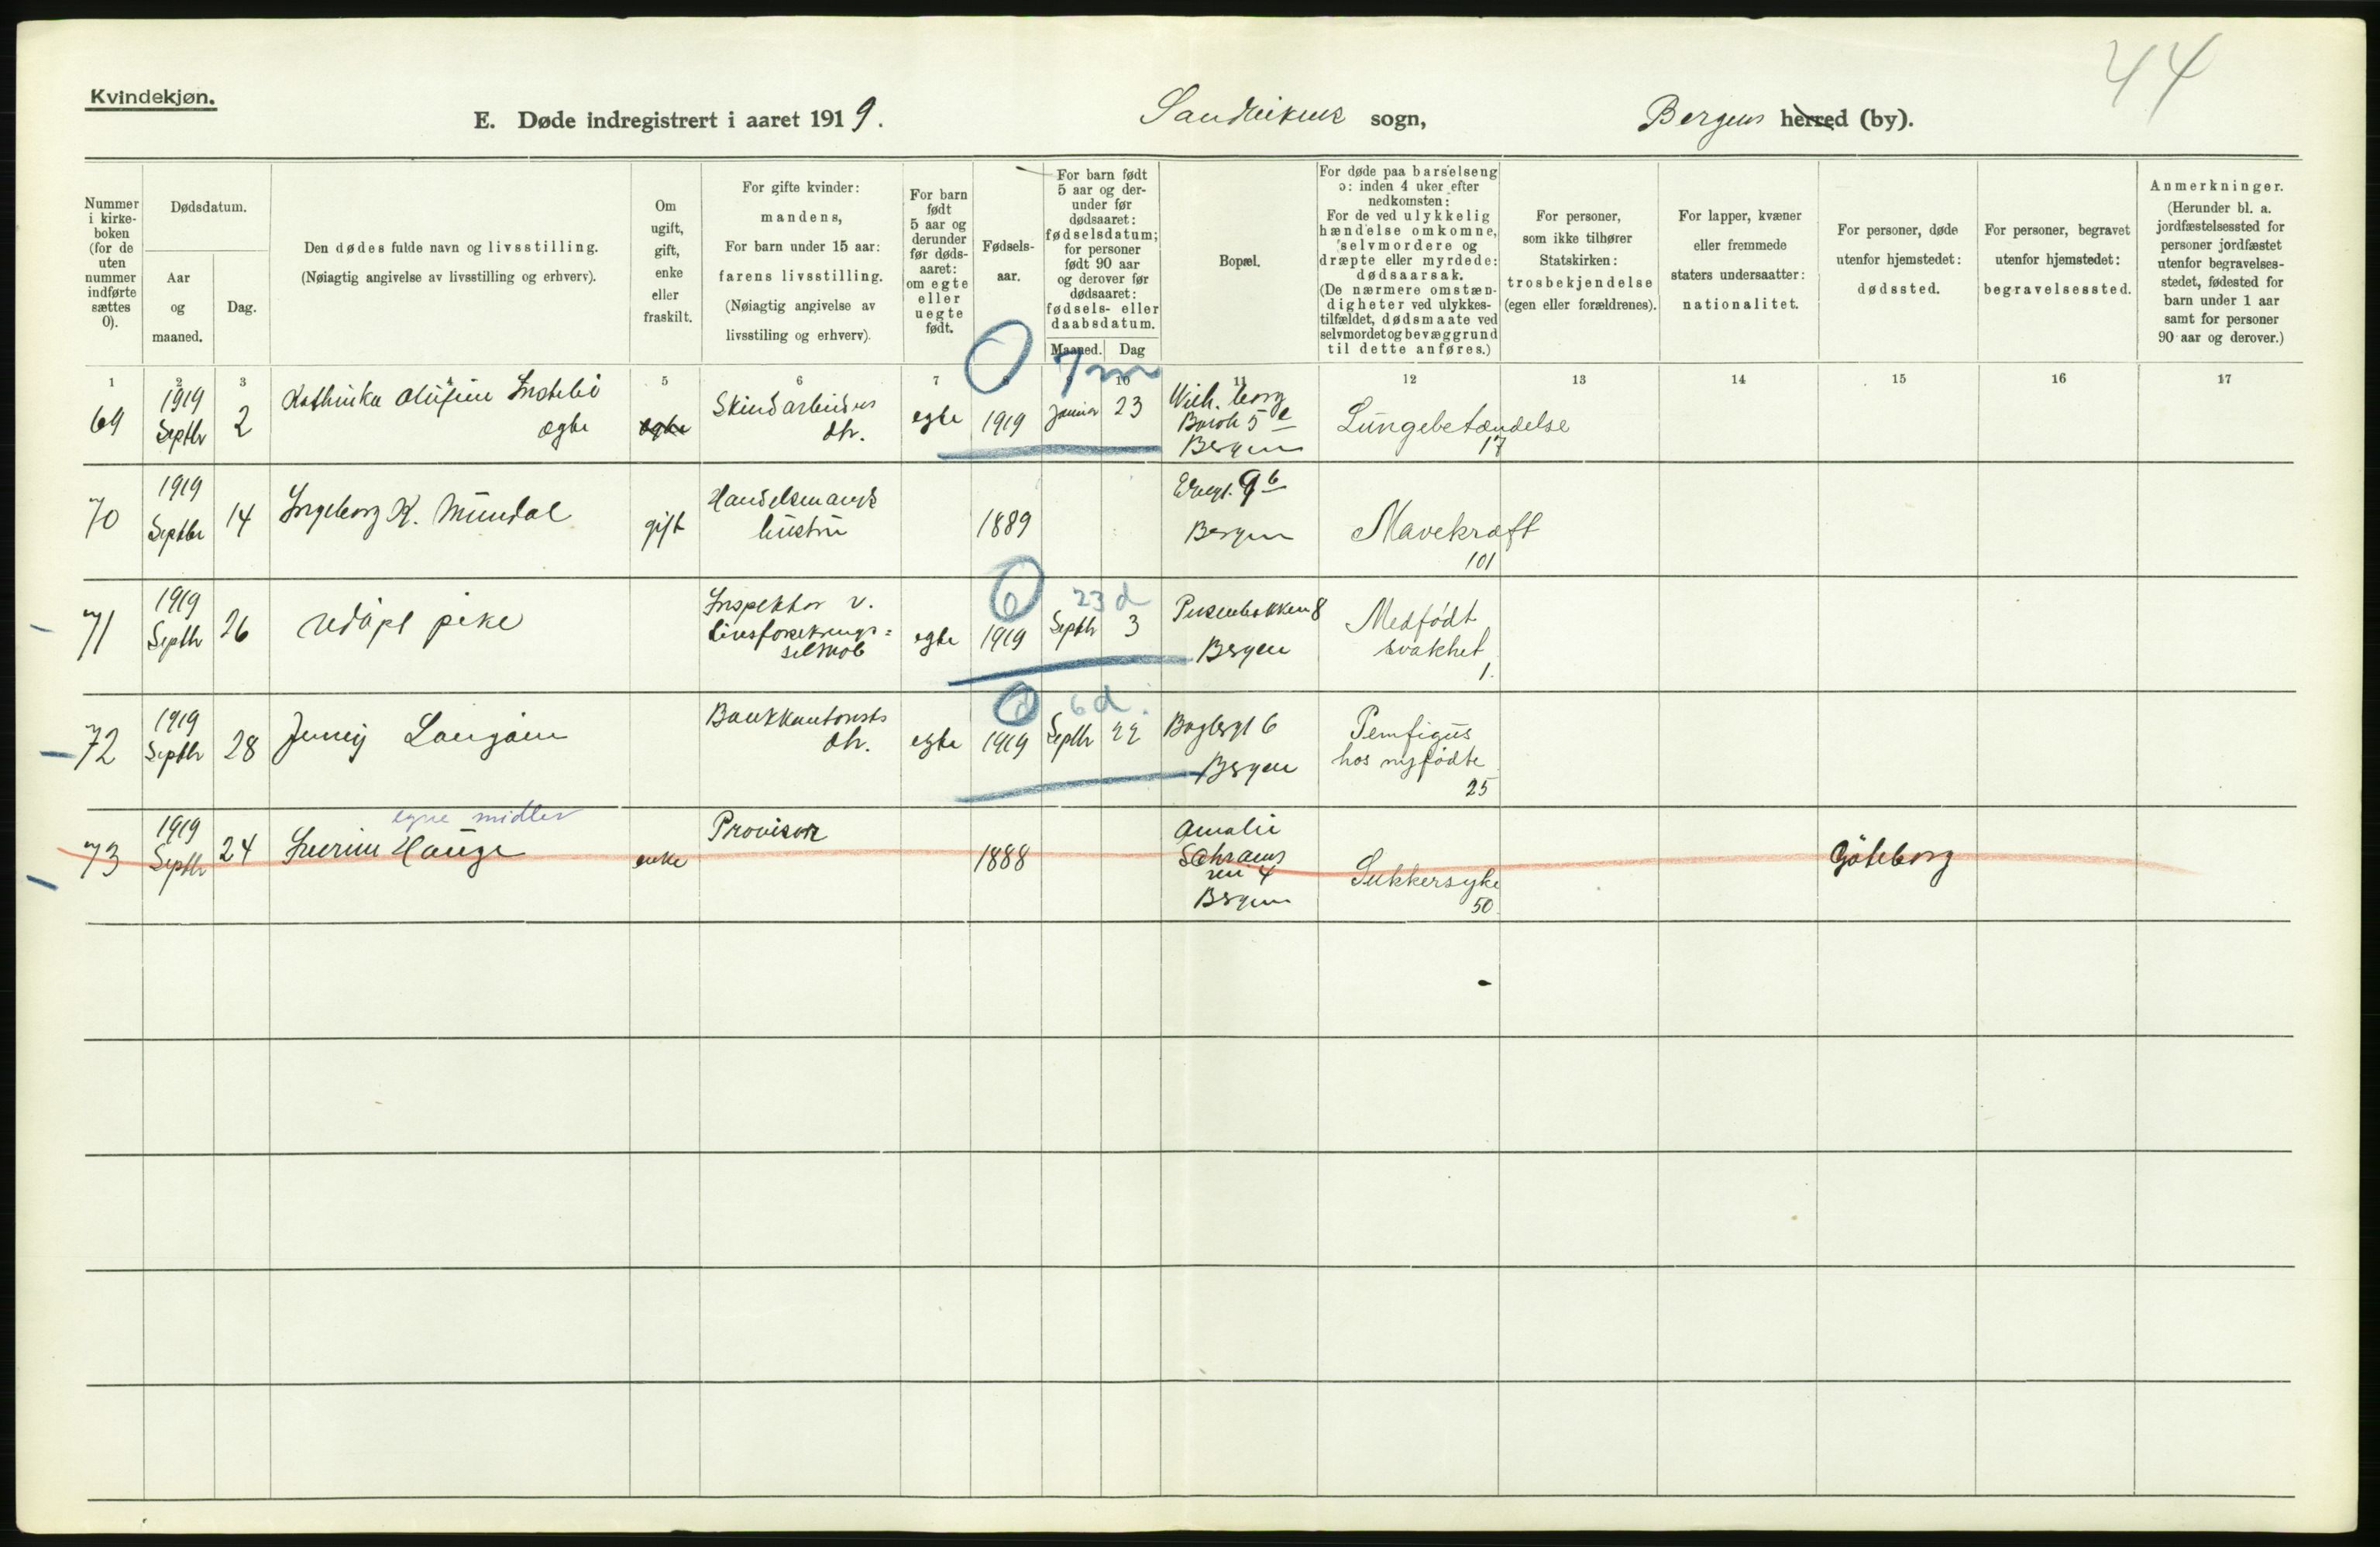 44
Kvindekjøn.
E. Døde indregistrert i aaret 1919. Sandvikens sogn, Bergens herred (by).
Nummer i kirke-boken (for de uten nummer indførte sættes 0).
Dødsdatum.
Aar og maaned.
Dag.
Den dødes fulde navn og livsstilling.
(Nøiagtig angivelse av livsstilling og erhverv).
Om ugift, gift, enke eller fraskilt.
For gifte kvinder:
mandens,
For barn under 15 aar:
farens livsstilling.
(Nøiagtig angivelse av
livsstiling og erhverv).
For barn født 5 aar og derunder før døds-aaret: om egte eller uegte født.
Fødsels-aar.
For barn født 5 aar og der-under før dødsaaret: fødselsdatum; for personer født 90 aar og derover før dødsaaret: fødsels- eller daabsdatum.
Maaned. Dag
Bopæl.
For døde paa barselseng
ɔ: inden 4 uker efter
nedkomsten:
For de ved ulykkelig
hændelse omkomne,
selvmordere og
dræpte eller myrdede:
dødsaarsak.
(De nærmere omstæn-
digheter ved ulykkes-
tilfældet, dødsmaate ved
selvmordet og bevæggrund
til dette anføres.)
For personer,
som ikke tilhører
Statskirken:
trosbekjendelse
(egen eller forældrenes).
For lapper, kvæner
eller fremmede
staters undersaatter:
nationalitet.
For personer, døde
utenfor hjemstedet:
dødssted.
For personer, begravet
utenfor hjemstedet:
begravelsessted.
Anmerkninger.
(Herunder bl. a.
jordfæstelsessted for
personer jordfæstet
utenfor begravelses-
stedet, fødested for
barn under 1 aar
samt for personer
90 aar og derover.)
1 2 3 5 6 7 10 11 12 13 14 15 16 17
7 m
69 1919 Septbr 2 egte Skindarbeiders dtr. egte 1919 Januar 23 Bergen Lungebetændelse 17
70 1919 Septbr 14 Ingeborg K. Mundal gift Handelsmands hustru 1889 9b Bergen Mavekræft 101
23 d
71 1919 Septbr 26 Udøpt pike Inspektør v. livsforsikrings= selskab egte 1919 Septbr 3 8 Bergen Medfødt svakhet 1.
6 d.
72 1919 Septbr 28 Jenny Bankkontorists dtr. egte 1919 Septbr 22 6 Bergen Pemfigus hos nyfødte 25
egne midler
73 1919 Septbr 24 Hauge enke Provisor 1888 Amalie Schrams vei 4 Bergen Sukkersyke 50 Göteborg